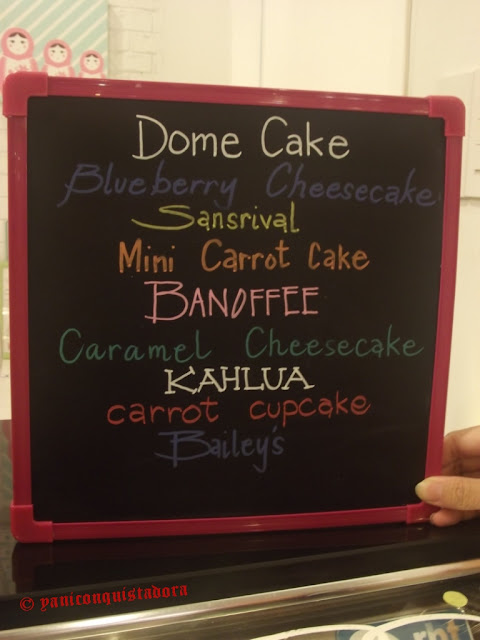 Dome Cake
Blueberry Cheesecake
Sansrival
Mini Carrot Cake
BANOFFEE
Caramel Cheesecake
KAHLUA
carrot cupcake
Bailey's
© yaniconquistadora